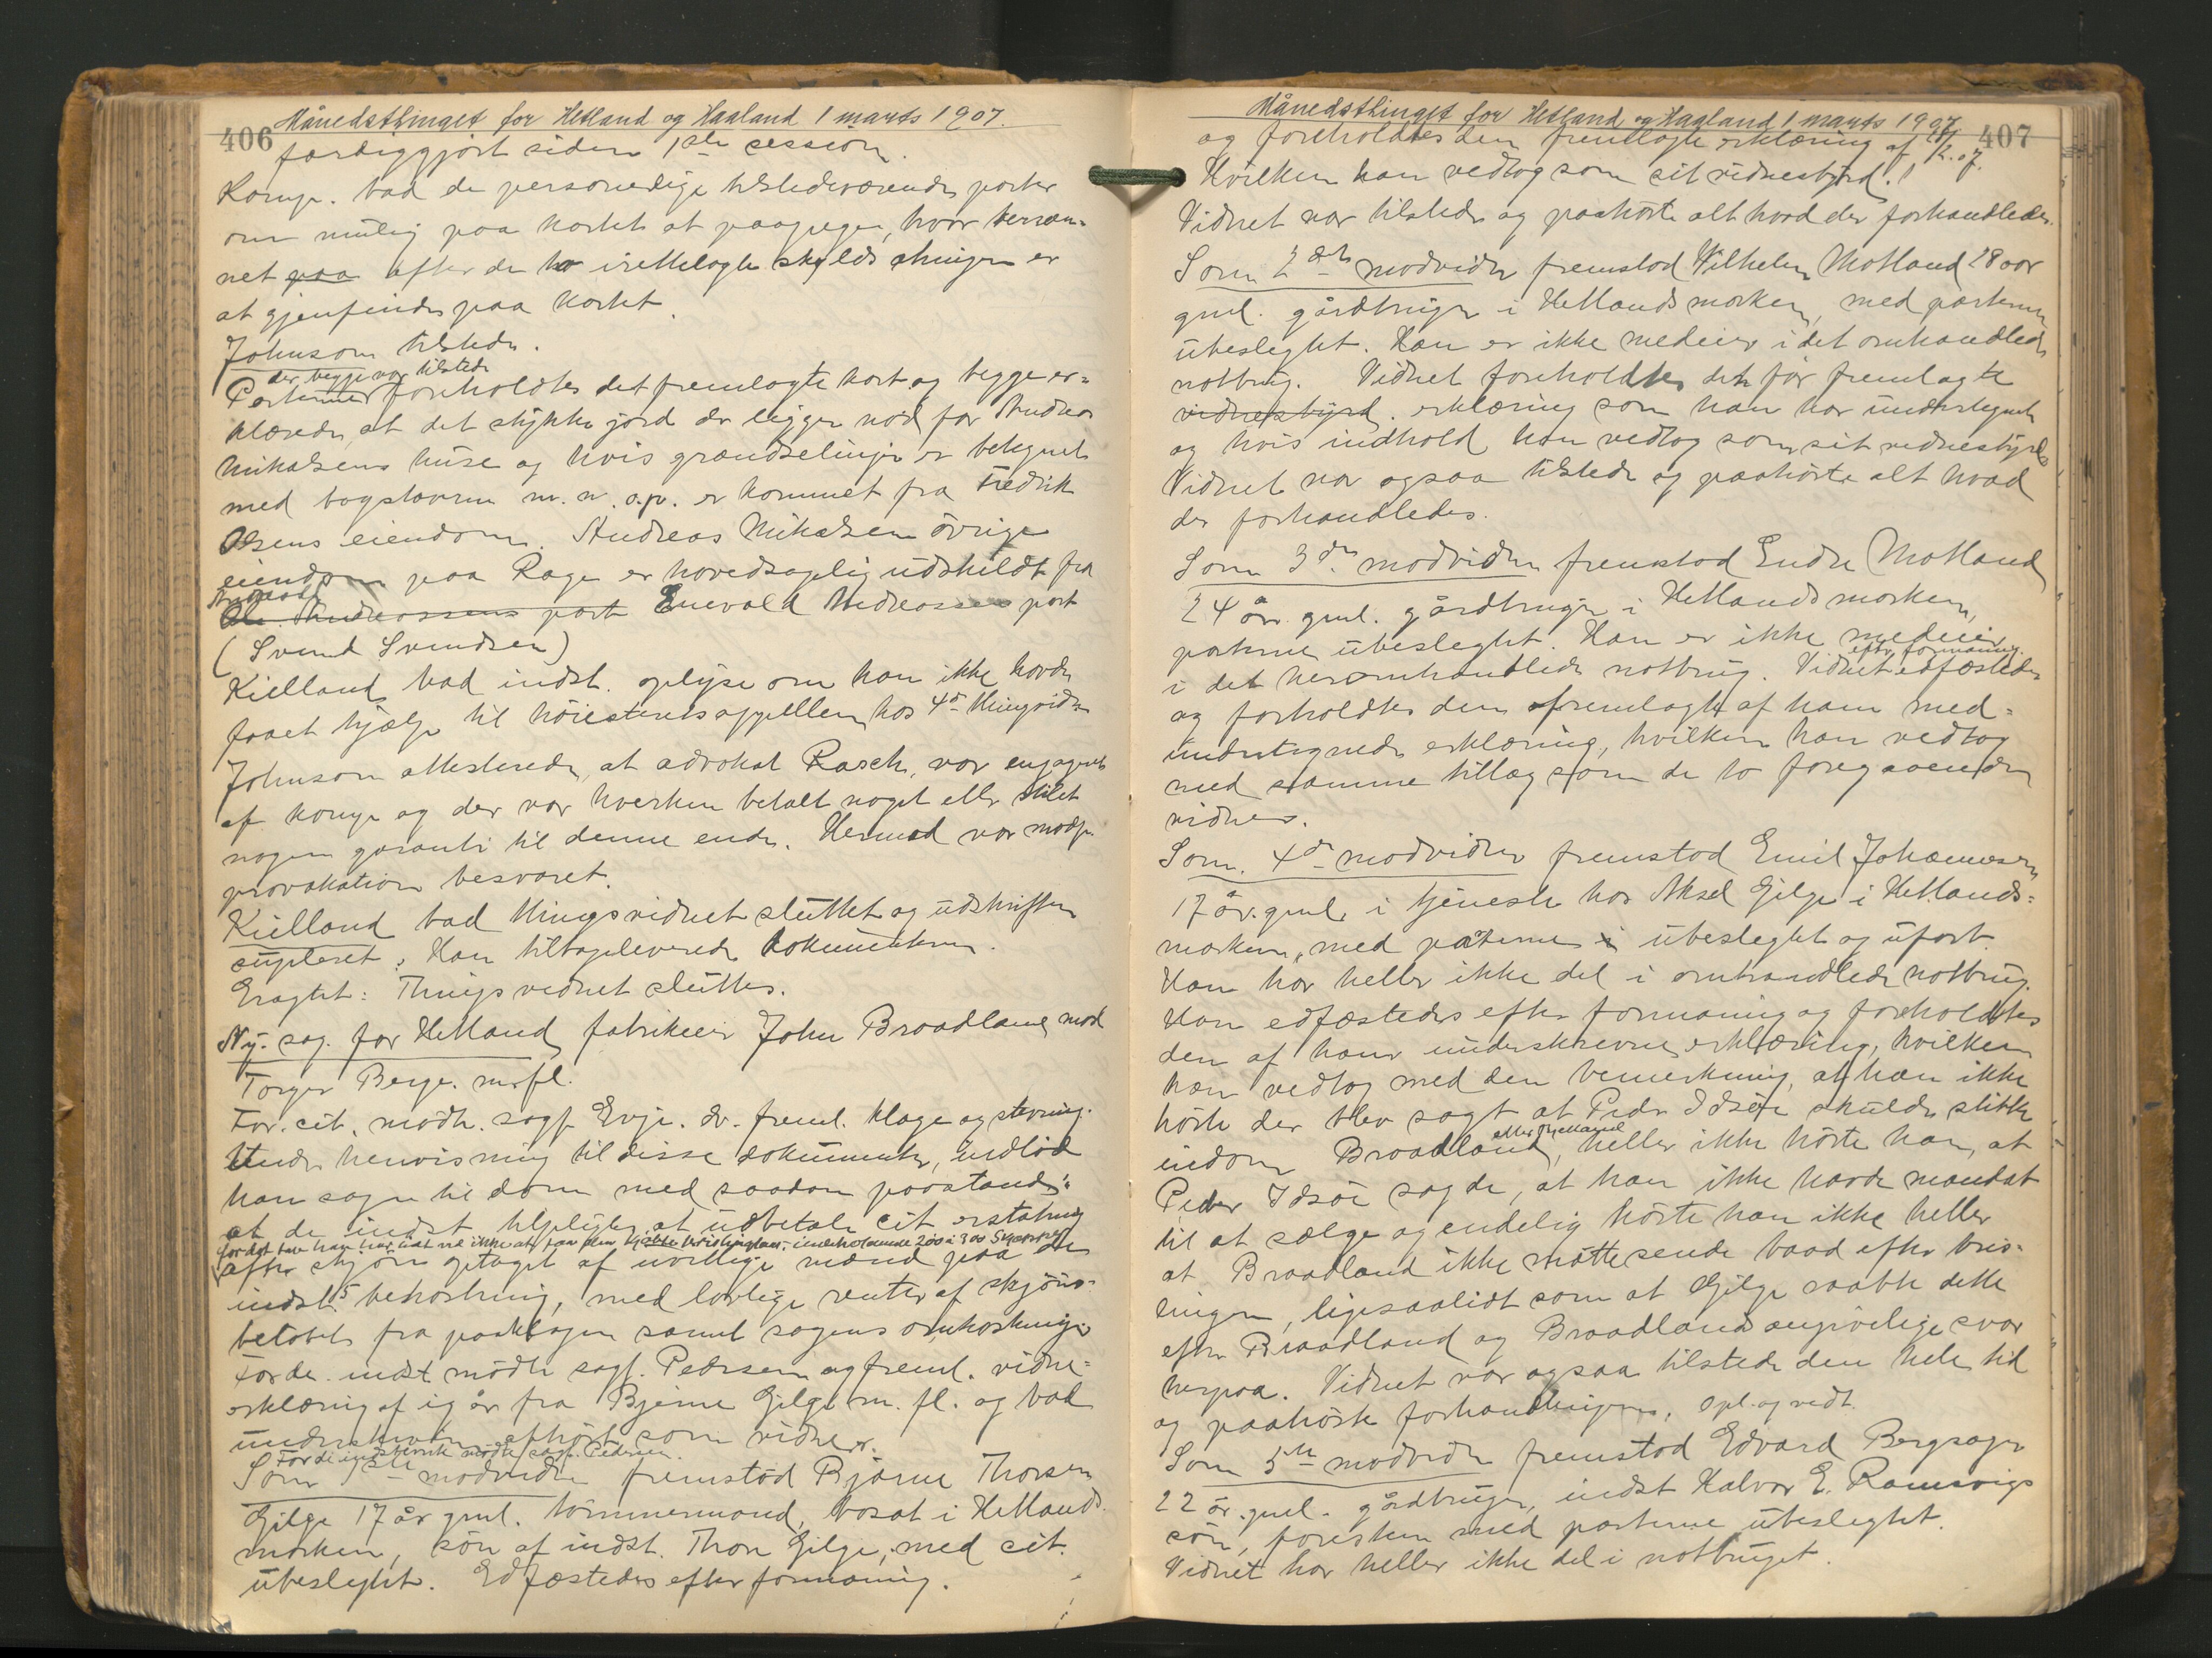 406
Månedsthinget for Hetland og Haaland 1 marts 1907.
færdiggjort siden 1ste session.
Komp. bad de personedige tilstedeværende parter
om mulig paa kartet at paapege, hvor terræn-
net paa efter de to irettelagte skyldsætninger er
at gjenfindes paa kartet.
Johnson tilstede.
der begge var tilstede
Parterne foreholdtes det fremlagte kort og begge er-
klærede, at det stykke jord der ligger nød for Andreas
Mikalsens huse og hvis grændselinjer er betegnet
med bogstaverne m. n. o. p. er kommet fra Fredrik
Olsens eiendom. Andreas Mikalsen övrige
eiendom paa Rage er hovedsagelig udskildt fra
Ole Andreassens part Enevald Andreassens part
(Svend Svendsen)
Kielland bad indst. oplyse om han ikke havde
faaet hjælp til höiesteretsappellen hos 4de thingvidne
Johnson attesterede, at advokat Rasch, var engageret
af komp og der var hverken betalt noget eller stilet
nogen garanti til denne ende. Hermed var modp.
provokation besvaret.
Kielland bad thingsvidnet sluttet og udskriften
supleret. Han tilbageleverede dokumenterne.
Eragtet: Thingsvidnet sluttes.
Ny. sag for Hetland fabrikeier John Braadland mod
Torger Berge m. fl.
For. cit. mødte sagf. Evje. dr. freml. klage og stevning.
Under henvisning til disse dokumenter, indlod
han sagen til dom med saadan paastand:
at de indst. tilpligtes at udbetale cit. erstatning
fordet tab han har lidt ved ikke at faa den kjøbte brislinglaas, indeholdende 200 à 300 Skjæpper
efter skjön optaget af uvillige mænd paa de
indst.s bekostning, med lovlige renter af skjöns-
beløbet fra paaklagen samt sagens omkostninger
For de indst. mødte sagf. Pedersen og freml. vidne-
erklæring af igår fra Bjerne Gilje m. fl. og bad
underskriverne afhört som vidner.
For de indstevnte mødte sagf. Pedersen.
Som 1ste modvidne fremstod Bjarne Thorsen
Gilje 17 år gml. tömmermand, bosat i Hetlands-
marken, sön af indst. Thore Gilje, med cit.
ubeslegtet. Edfæstedes efter formaning.
407
Månedsthinget for Hetland og Haaland 1 marts 1907
og foreholdtes den fremlagte erklæring af 28/2.07.
Hvilken han vedtog som sit vidnesbyrd.
Vidnet var tilstede og paahörte alt hvad der forhandledes.
Som 2det modvidne fremstod Vilhelm Motland 28 aar
gml. gårdbruger i Hetlandsmarken, med parterne
ubeslegtet. Han er ikke medeier i det omhandlede
notbrug. Vidnet foreholdtes den før fremlagte
vidnesbyrd. erklæring som han har undertegnet
og hvis indhold han vedtog som sit vidnesbyrd
Vidnet var ogsaa tilstede og paahörte alt hvad
der forhandledes.
Som 3die modvidne fremstod Endre Motland
24 år gml. gårdbruger i Hetlandsmarken,
parterne ubeslegtet. Han er ikke medeier
efter formaning.
i det heromhandlede notbrug. Vidnet edfæstedes
og forholdtes den fremlagte af ham med-
undertegnede erklæring, hvilken han vedtog
med samme tillæg som de to foregaaende
vidner.
Som 4de modvidne fremstod Emil Johannesen
17 år. gml. i tjeneste hos Aksel Gilje i Hetlands-
marken, med parterne i ubeslegtet og ufort.
Han har heller ikke del i omhandlede notbrug.
Han edfæstedes efter formaning og foreholdtes
den af ham underskrevne erklæring, hvilken
han vedtog med den bemerkning, at han ikke
hörte der blev sagt at Peder Idsöe skulde stikke
eller Hetland
indom Braadland, heller ikke hörte han, at
Peder Idsöe sagde, at han ikke havde mandat
til at sælge og endelig hörte han ikke heller
at Braadland ikke måtte sende baad efter bris-
lingen, ligesaalidt som at Gilje raabte dette
efter Braadland og Braadlands angivelige svar
herpaa. Vidnet var ogsaa tilstede den hele tid
og paahörte forhandlingerne, opl. og vedt.
Som 5te modvidne fremstod Edvard Bergsager
22 år. gml. gårdbruger, indst Halvor E. Ramsvigs
sön, foresten med parterne ubeslegtet.
Vidnet har heller ikke del i notbruget.